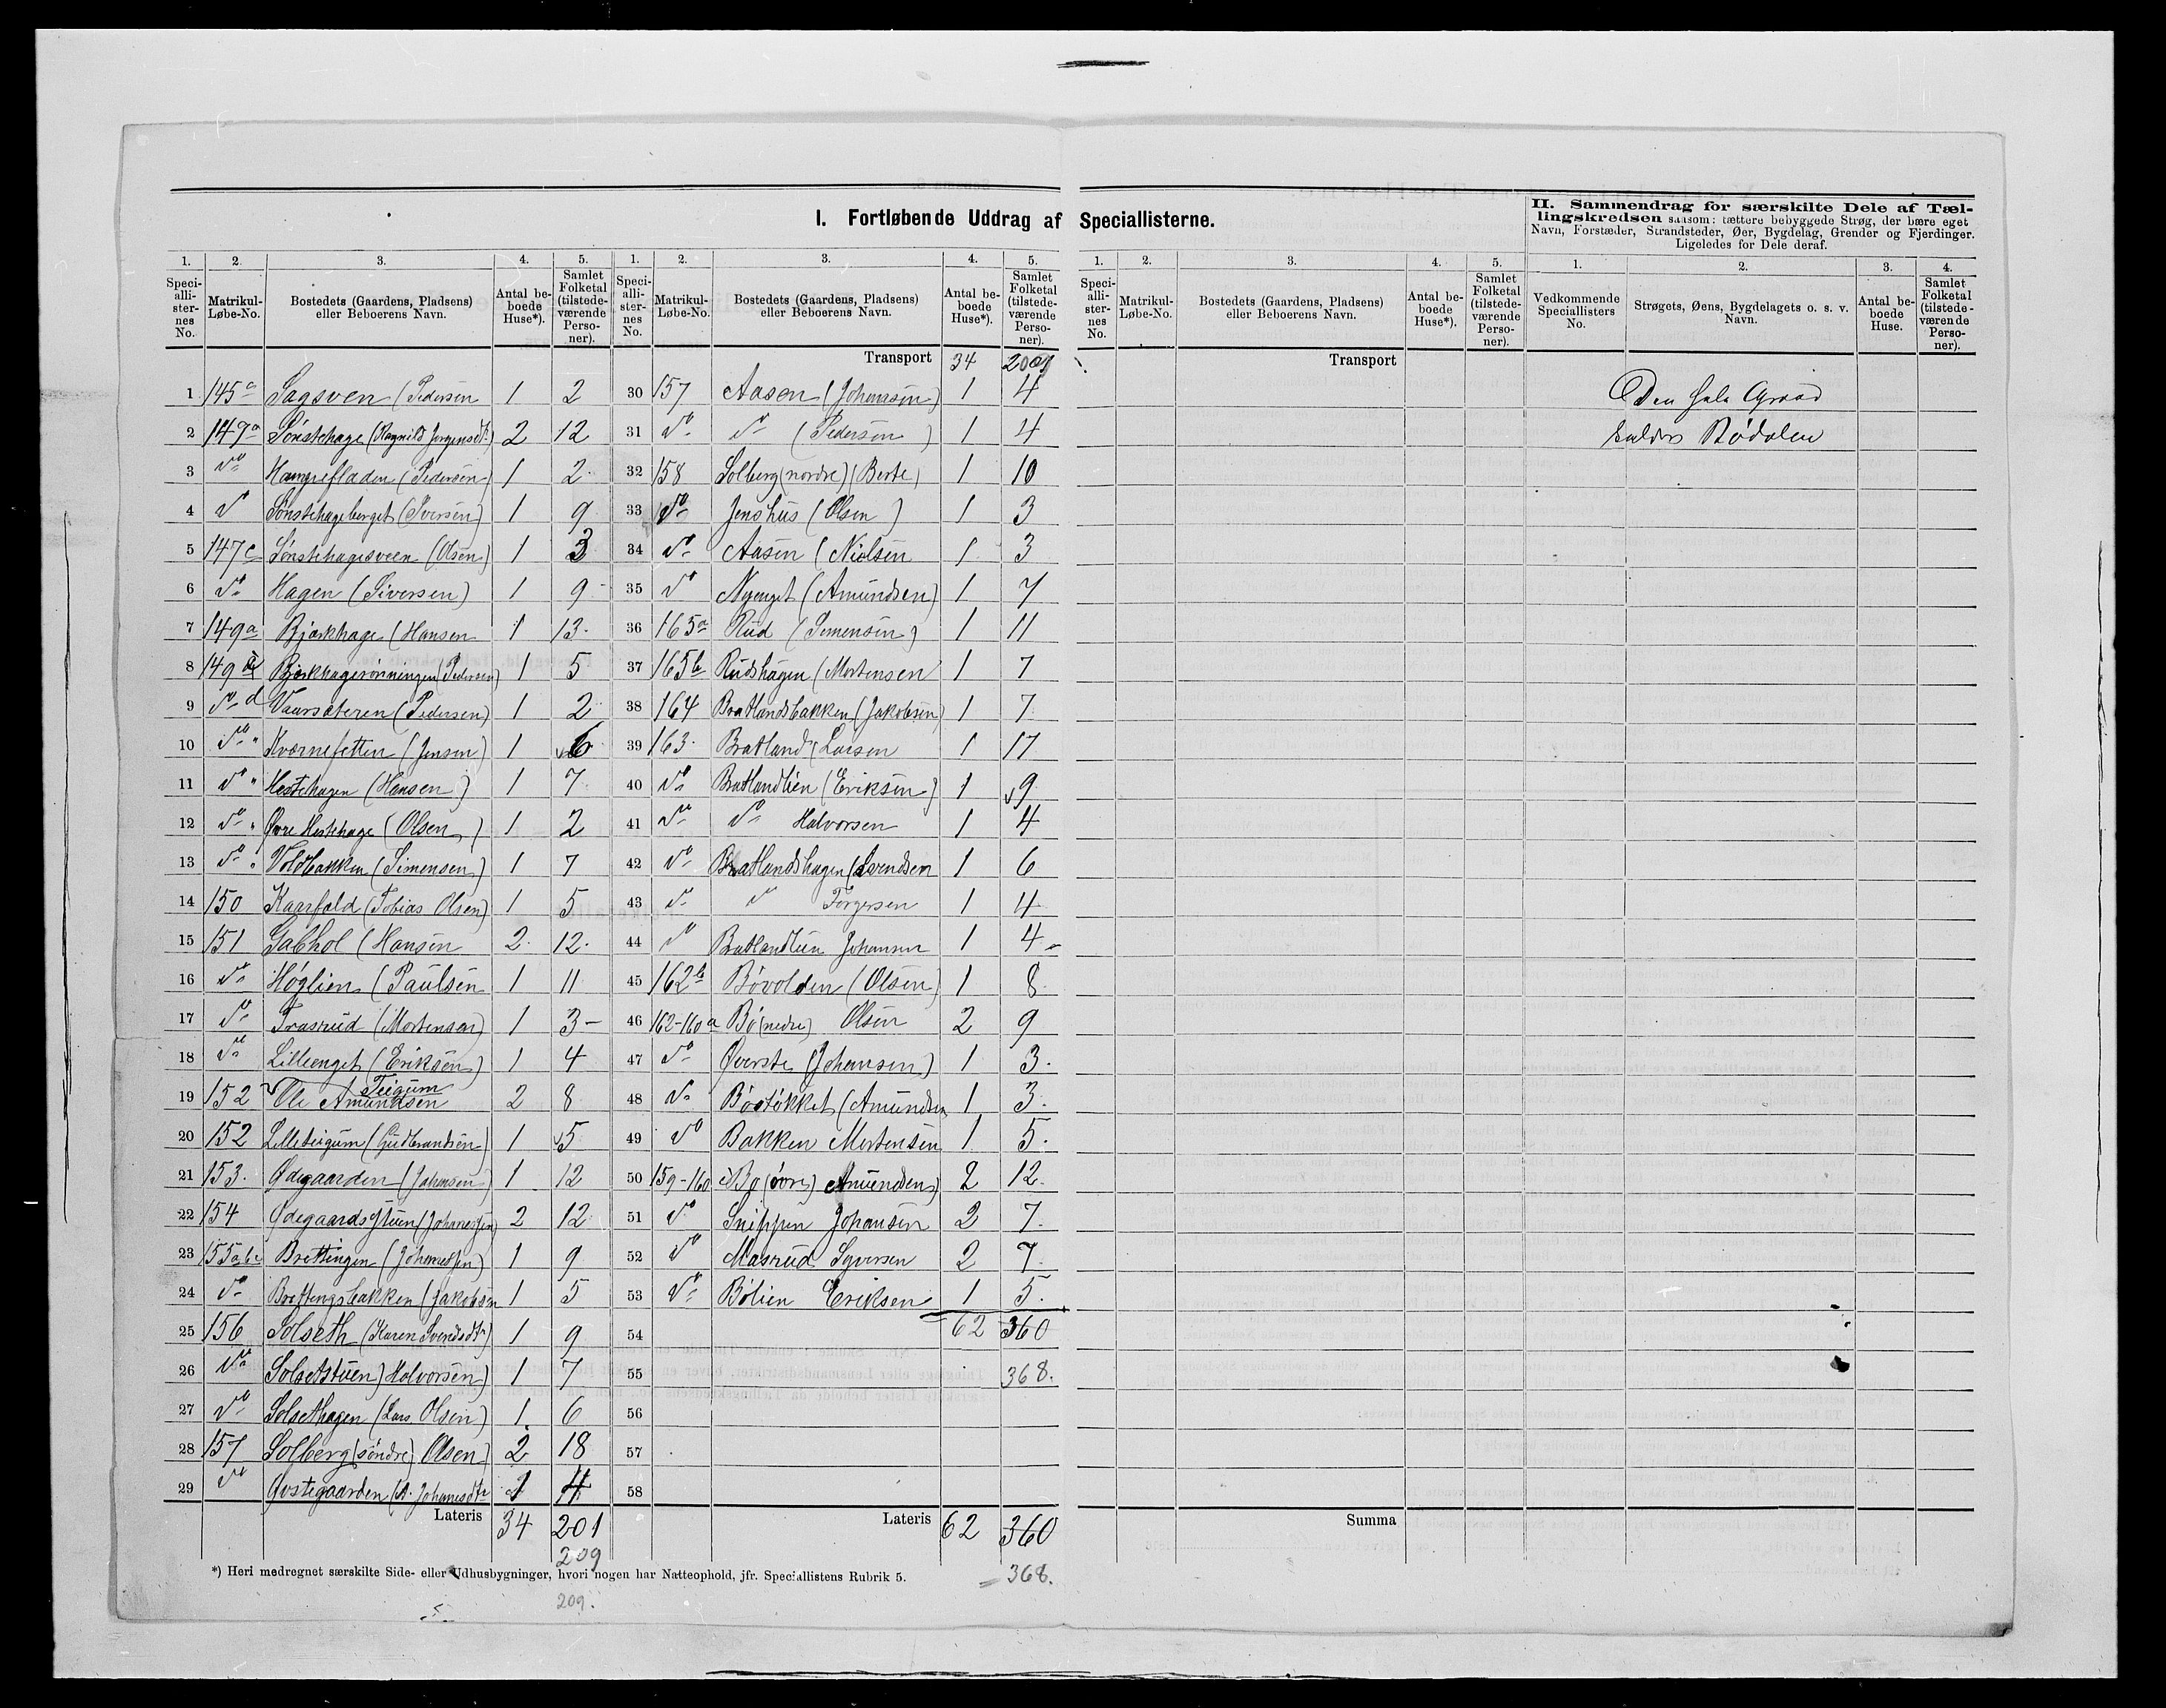 I. Fortløbende Uddrag af Speciallisterne.
II. Sammendrag for særskilte Dele af Tæl-
lingskredsen saasom: tættere bebyggede Strøg, der bære eget
Navn, Forstæder, Strandsteder, Øer, Bygdelag, Grender og Fjerdinger.
Ligeledes for Dele deraf.
1. 2. 3. 4. 5. 1. 2. 3. 4. 5.
Speci-alli-ster-nes No. Matrikul-Løbe-No. Bostedets (Gaardens, Pladsens) eller Beboerens Navn. Antal be-boede Huse*). Samlet Folketal (tilstede-værende Perso-ner). Speci-alli-ster-nes No. Matrikul-Løbe-No. Bostedets (Gaardens, Pladsens) eller Beboerens Navn. Antal be-boede Huse*). Samlet Folketal (tilstede-værende Perso-ner).
Transport 34
1 145a Sagsveen (Pedersen 1 2
2 149a Sønstehage (Ragnild Jørgensdtr 2 12
3 do (Pedersen) 1 2
4 do Sønstehageberget (Iversen) 1 9
5 147c Sønstehagesveen (Olsen) 1 3
6 do Hagen (Siversen) 1 9
7 149a Bjørkhage (Hansen 1 13
8 149 Bjørkhagerønningen (Pedersen) 1 5
9 do d Vaarsæteren (Pedersen) 1 2
10 do " Kværnefetten (Jensen) 1 6
11 do " Hestehagen (Hansen) 1 7
12 do " Øvre Hestehage (Olsen) 1 2
13 do " Voldbakken (Simensen) 1 7
14 150 Kaarfald (Tobias Olsen) 1 5
15 151 Gabhol (Hansen 2 12
16 do Høglien (Paulsen 1 11
17 do Trosrud (Mortensen) 1 3
18 do Lilleenget (Eriksen) 1 4
19 152 Teigum Ole Amundsen 2 8
20 152 Lilleteigum (Gudbrandsen) 1 5
21 153. Ødegaarden (Johansen) 1 12
22 154 Ødegaardsstuen (Johannessen) 2 12
23 155abc Brettingen (Johannessen) 1 9
24 do Brettingsbakken (Jakobsen 1 5
25 156 Solseth (Karen Svendsdtr) 1 9
26 do Solsetstuen) Halvorsen) 1 7
27 do Solsethagen (Lars Olsen) 1 6
28 157 Solberg (søndre) Olsen) 2 18
29 do Østegaarden (A. Johanesdtr 1 4
Lateris 34 201
209
30 157 Aasen (Johansen) 1 4
31 do do (Pedersen) 1 4
32 158 Solberg (nordre) (Berte) 1 10
33 do Jenshus (Olsen) 1 3
34 do Aasen (Nielsen 1 3
35 do Nyenget (Amundsen) 1 7
36 165a Rud (Semensen) 1 11
37 165b Rudshagen (Mortensen 1 7
38 164 Bratlandsbakken (Jakobsen) 1 7
39 163. Bratland (Larsen 1 17
40 do Bratlandlien (Eriksen) 1 9
41 do do Halvorsen 1 4
42 do Bratlandshagen (Svendsen 1 6
43 do do Torgersen 1 4
44 do Bratlandlien Johansen 1 4
45 162b Bøvolden (Olsen) 1 8
46 162-160a Bø (nedre) Olsen 2 9
47 do Øverste (Johansen) 1 3.
48 do Bøstøkket (Amundsen 1 3.
49 do Bakken Mortensen 1 5.
50 159-160 Bø (øvre) Amundsen) 2 12.
51 do Snippen Johansen 2 7.
52 do Masrud Syversen 2 7.
53 do Bølien Eriksen 1 5.
54 62 360
55 368.
56
57
58
Lateris 62 360
368.
*) Heri medregnet særskilte Side- eller Udhusbygninger, hvori nogen har Natteophold, jfr. Speciallistens Rubrik 5.
209.
1. 2. 3. 4. 5.
Speci-alli-ster-nes No. Matrikul-Løbe-No. Bostedets (Gaardens, Pladsens) eller Beboerens Navn. Antal be-boede Huse*). Samlet Folketal (tilstede-værende Perso-ner).
Transport
Summa
1. 2. 3. 4.
Vedkommende Speciallisters No. Strøgets, Øens, Bygdelagets o. s. v. Navn. Antal be-boede Huse. Samlet Folketal (tilstede-værende Perso-ner).
Den hele
kaldes Bødalen